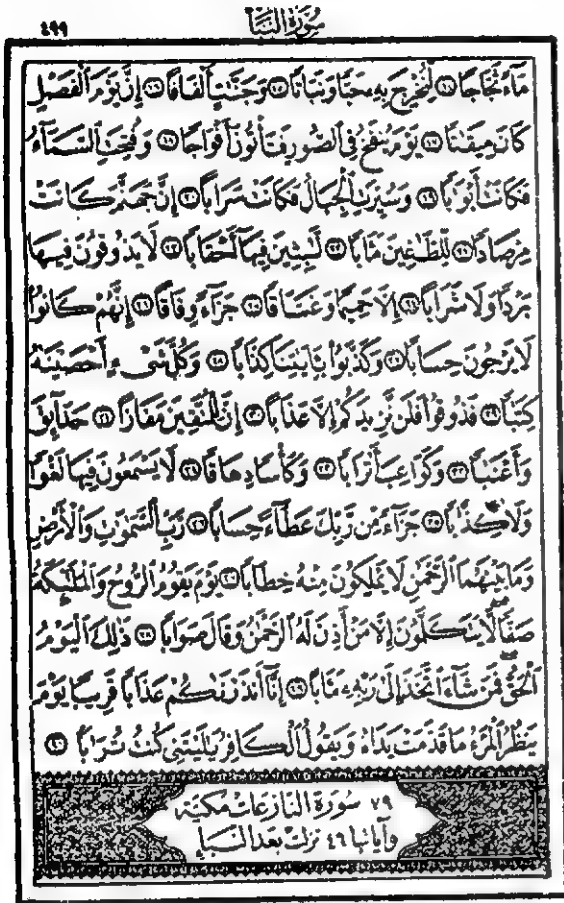 سُورَةُ النَّبَإِ
٤٩٩
مَآءً ثَجَّاجًا ⑭ لِّنُخْرِجَ بِهِۦ حَبًّا وَنَبَاتًا ⑮ وَجَنَّٰتٍ أَلْفَافًا ⑯ إِنَّ يَوْمَ ٱلْفَصْلِ
كَانَ مِيقَٰتًا ⑰ يَوْمَ يُنفَخُ فِى ٱلصُّورِ فَتَأْتُونَ أَفْوَاجًا ⑱ وَفُتِحَتِ ٱلسَّمَآءُ
فَكَانَتْ أَبْوَٰبًا ⑲ وَسُيِّرَتِ ٱلْجِبَالُ فَكَانَتْ سَرَابًا ⑳ إِنَّ جَهَنَّمَ كَانَتْ
مِرْصَادًا ㉑ لِّلطَّٰغِينَ مَـَٔابًا ㉒ لَّٰبِثِينَ فِيهَآ أَحْقَابًا ㉓ لَّا يَذُوقُونَ فِيهَا
بَرْدًا وَلَا شَرَابًا ㉔ إِلَّا حَمِيمًا وَغَسَّاقًا ㉕ جَزَآءً وِفَاقًا ㉖ إِنَّهُمْ كَانُوا۟
لَا يَرْجُونَ حِسَابًا ㉗ وَكَذَّبُوا۟ بِـَٔايَٰتِنَا كِذَّابًا ㉘ وَكُلَّ شَىْءٍ أَحْصَيْنَٰهُ
كِتَٰبًا ㉙ فَذُوقُوا۟ فَلَن نَّزِيدَكُمْ إِلَّا عَذَابًا ㉚ إِنَّ لِلْمُتَّقِينَ مَفَازًا ㉛ حَدَآئِقَ
وَأَعْنَٰبًا ㉜ وَكَوَاعِبَ أَتْرَابًا ㉝ وَكَأْسًا دِهَاقًا ㉞ لَّا يَسْمَعُونَ فِيهَا لَغْوًا
وَلَا كِذَّٰبًا ㉟ جَزَآءً مِّن رَّبِّكَ عَطَآءً حِسَابًا ㊱ رَّبِّ ٱلسَّمَٰوَٰتِ وَٱلْأَرْضِ
وَمَا بَيْنَهُمَا ٱلرَّحْمَٰنِ لَا يَمْلِكُونَ مِنْهُ خِطَابًا ㊲ يَوْمَ يَقُومُ ٱلرُّوحُ وَٱلْمَلَٰٓئِكَةُ
صَفًّا لَّا يَتَكَلَّمُونَ إِلَّا مَنْ أَذِنَ لَهُ ٱلرَّحْمَٰنُ وَقَالَ صَوَابًا ㊳ ذَٰلِكَ ٱلْيَوْمُ
ٱلْحَقُّ فَمَن شَآءَ ٱتَّخَذَ إِلَىٰ رَبِّهِۦ مَـَٔابًا ㊴ إِنَّآ أَنذَرْنَٰكُمْ عَذَابًا قَرِيبًا يَوْمَ
يَنظُرُ ٱلْمَرْءُ مَا قَدَّمَتْ يَدَاهُ وَيَقُولُ ٱلْكَافِرُ يَٰلَيْتَنِى كُنتُ تُرَٰبًا ㊵
٧٩ سُورَة النازعَات مَكيّة
وآياتها ٤٦ نزلت بعد النبإ